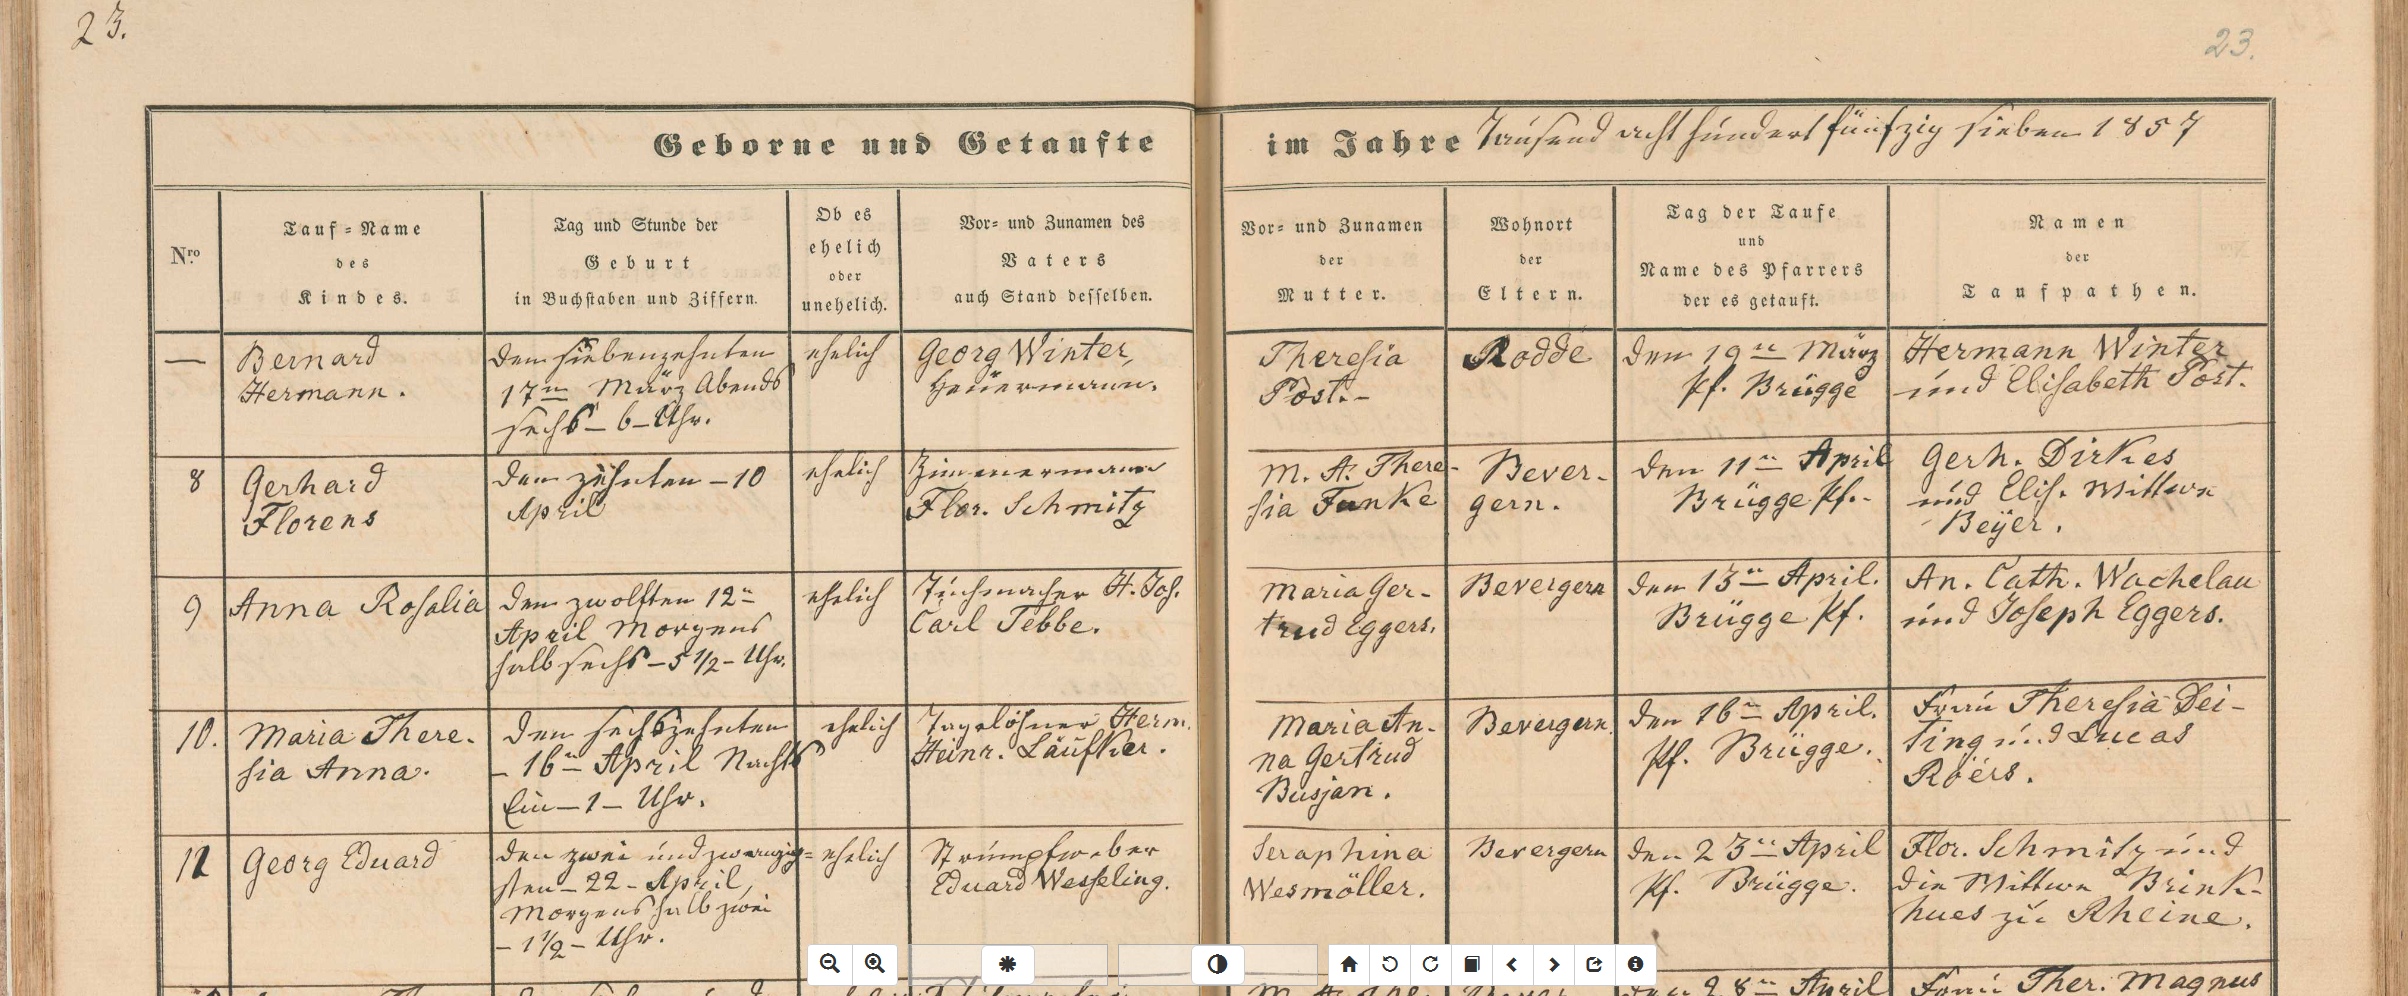 23.
23.
Geborne und Getaufte
im Jahre Tausend acht hundert fünfzig sieben 1857
Nro
Tauf-Name
des
Kindes.
Tag und Stunde der
Geburt
in Buchstaben und Ziffern.
Ob es
ehelich
oder
unehelich.
Vor- und Zunamen des
Vaters
auch Stand desselben.
Vor- und Zunamen
der
Mutter.
Wohnort
der
Eltern.
Tag der Taufe
und
Name des Pfarrers
der es getauft.
Namen
der
Taufpathen.
—
Bernard
Hermann.
den siebenzehnten
17ten März Abends
sechs – 6 – Uhr.
ehelich
Georg Winter,
Heuermann.
Theresia
Post. –
Rodde
den 19ten März
Pf. Brügge
Hermann Winter
und Elisabeth Post.
8
Gerhard
Florens
den zehnten – 10
April
ehelich
Zimmermann
Flor. Schmitz
M. A. There-
sia Funke
Bever-
gern.
den 11ten April
Brügge Pf. –
Gerh. Dirkes
und Elis. Wittwe
Beÿer.
9
Anna Rosalia
den zwolften 12ten
April Morgens
halb sechs – 5 1/2 – Uhr.
ehelich
Tuchmacher H. Jos.
Carl Tebbe.
Maria Ger-
trud Eggers.
Bevergern
den 13ten April.
Brügge Pf.
An. Cath. Wachelau
und Joseph Eggers.
10.
Maria There-
sia Anna.
den sechszehnten
– 16ten April Nachts
Ein – 1 – Uhr.
ehelich
Tagelöhner Herm.
Heinr. Läufker.
Maria An-
na Gertrud
Busjan.
Bevergern
den 16ten April.
Pf. Brügge.
Frau Theresia Dei-
ting und Lucas
Roërs.
Georg Eduard
den zwei und zwanzig-
sten – 22 – April,
Morgens halb zwei
– 1 1/2 – Uhr.
ehelich
Strumpfweber
Eduard Wesseling.
Seraphina
Wesmöller.
Bevergern
den 23ten April
Pf. Brügge.
Flor. Schmitz und
die Wittwe Brink-
hues zu Rheine.
den 28ten April
Frau Ther. Magnus